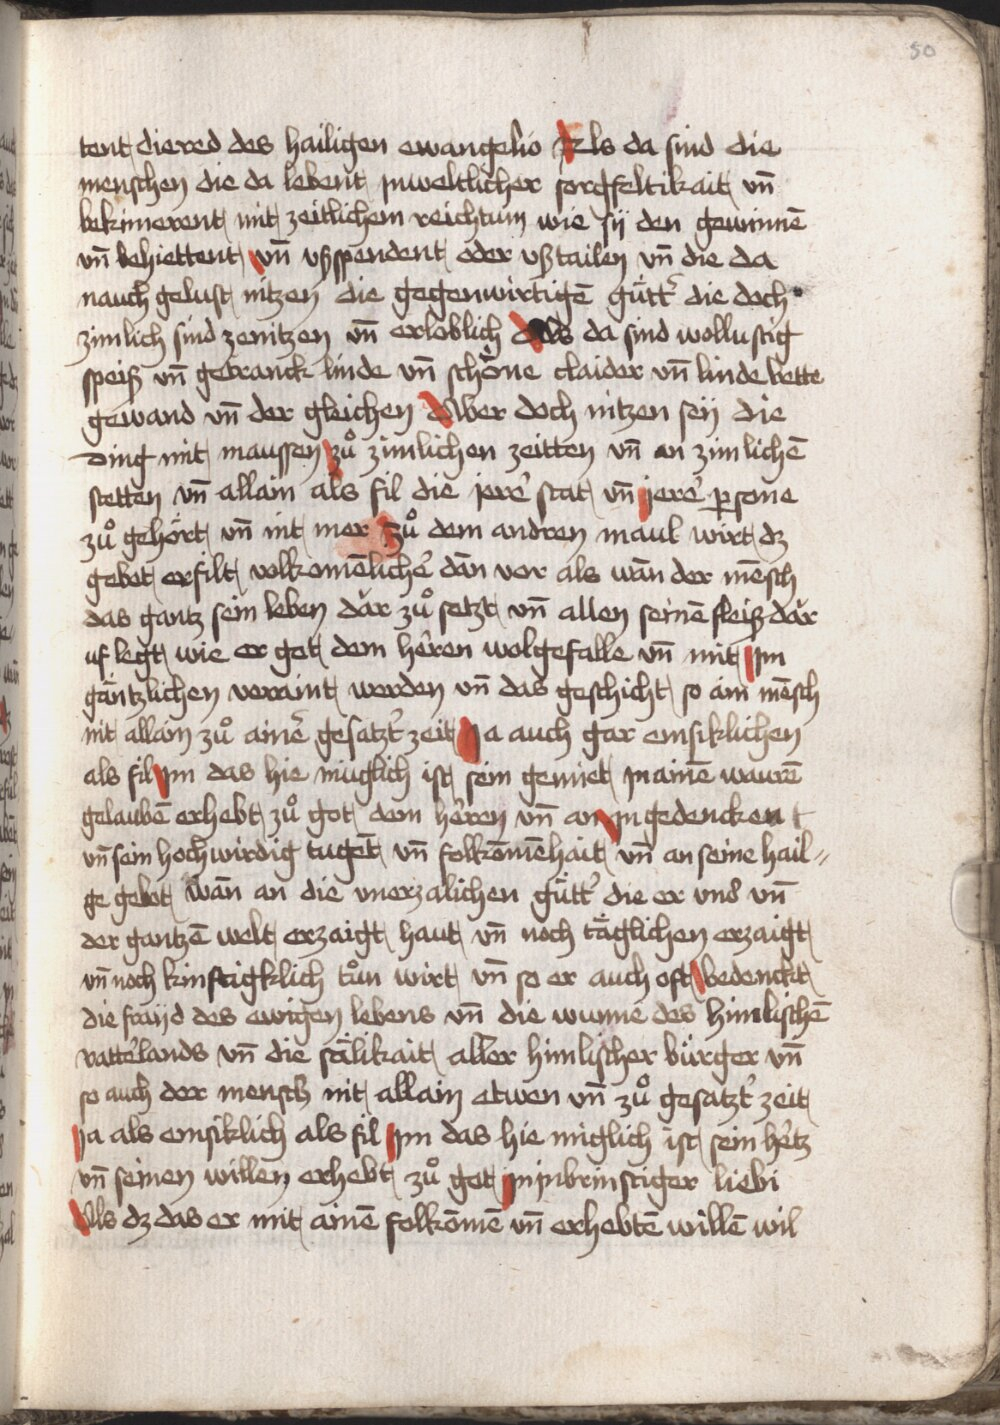 50
tent die red des hailigen ewangelio Als da sind die
menschen die da lebent jn weltlicher sorgfeltikait vn̄
bekimerent mit zeitlichem reichtum wie sij den gewinnē
vn̄ behiettent vn̄ vßspendent oder vßtailen vn̄ die da
nauch gelust nitzen die gegenwirtigē gütt̾ die doch
zimlich sind ze nitzen vn̄ erloblich Als da sind wollustig
speiß vn̄ getranck linde vn̄ schöne claider vn̄ linde bette
gewand vn̄ der gleichen Aber doch nitzen seij die
ding mit maussen zů zimlichen zeitten vn̄ an zimlichē
stetten vn̄ allain als fil die jere̾ stat vn̄ jere̾ ꝑsone
zů gehört vn̄ nit mer Zů dem andren maul wirt dz
gebot erfilt volkomēliche̾ dān vor als wān der mēsch
das gantz sein leben dar zů setzt vn̄ allen seinē fleiß dar
uf legt wie er got dem heren wolgefalle vn̄ mit jm
gäntzlichen veraint werden vn̄ das geschicht so ain mēsch
nit allain zů aine̾ gesatzt̾ zeit Ja auch gar emsiklichen
als fil jm das hie müglich ist sein gemiet jn ainē waurē
gelaubē erhebt zů got dem heren vn̄ an jn gedencken t
vn̄ sein hochwirdig tugēt vn̄ folkōmēhait vn̄ an seine hail⸗
ge gebot wān an die vnerzalichen gütt̾ die er vns vn̄
der gantzē welt erzaigt haut vn̄ noch täglichen erzaigt
vn̄ noch kinftigklich tůn wirt vn̄ so er auch oft bedenckt
die fraijd des ewigen lebens vn̄ die wunne des himlischē
vatte̾lands vn̄ die sälikait aller himlischer bürger vn̄
so auch der mensch nit allain etwen vn̄ zů gesatzt̾ zeit
ja als emsiklich als fil jm das hie miglich ist sein he̾tz
vn̄ seinen willen erhebt zů got jn jnbrinstiger liebi
Als dz das er mit ainē folkōmē vn̄ erhebtē willē wil